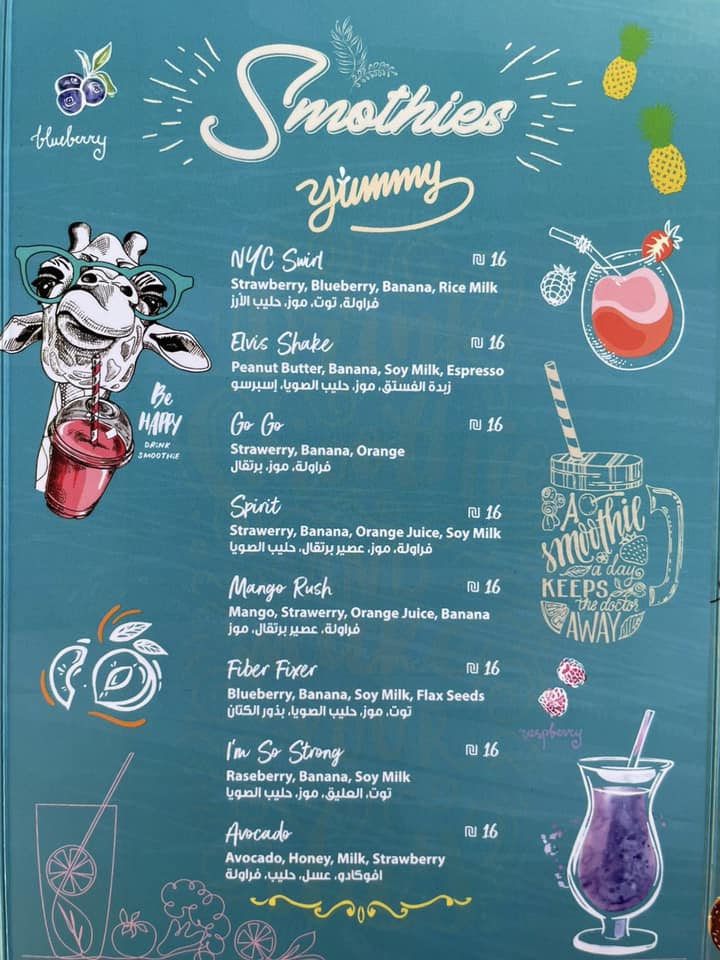 blueberry
Smothies
yummy
NYC Swirl ₪ 16
Strawberry, Blueberry, Banana, Rice Milk
فراولة، توت، موز، حليب الأرز
Elvis Shake ₪ 16
Peanut Butter, Banana, Soy Milk, Espresso
زبدة الفستق، موز، حليب الصويا، إسبرسو
Be
HAPPY
DRINK
SMOOTHIE
Go Go ₪ 16
Strawerry, Banana, Orange
فراولة، موز، برتقال
Spirit ₪ 16
Strawerry, Banana, Orange Juice, Soy Milk
فراولة، موز، عصير برتقال، حليب الصويا
A
smoothie
a day
KEEPS
the doctor
AWAY
Mango Rush ₪ 16
Mango, Strawerry, Orange Juice, Banana
فراولة، عصير برتقال، موز
Fiber Fixer ₪ 16
Blueberry, Banana, Soy Milk, Flax Seeds
توت، موز، حليب الصويا، بذور الكتان
raspberry
I'm So Strong ₪ 16
Raseberry, Banana, Soy Milk
توت، العليق، موز، حليب الصويا
Avocado ₪ 16
Avocado, Honey, Milk, Strawberry
افوكادو، عسل، حليب، فراولة